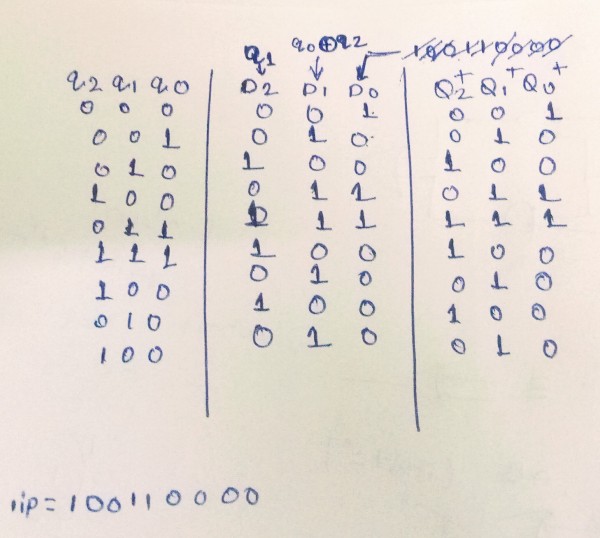 q1 q0⊕q2
q2 q1 q0 D2 D1 D0 Q2+ Q1+ Q0+
0 0 0 0 0 1 0 0 1
0 0 1 0 1 0 0 1 0
0 1 0 1 0 0 1 0 0
1 0 0 0 1 1 0 1 1
0 1 1 1 1 1 1 1 1
1 1 1 1 0 0 1 0 0
1 0 0 0 1 0 0 1 0
0 1 0 1 0 0 1 0 0
1 0 0 0 1 0 0 1 0
i/p = 1 0 0 1 1 0 0 0 0